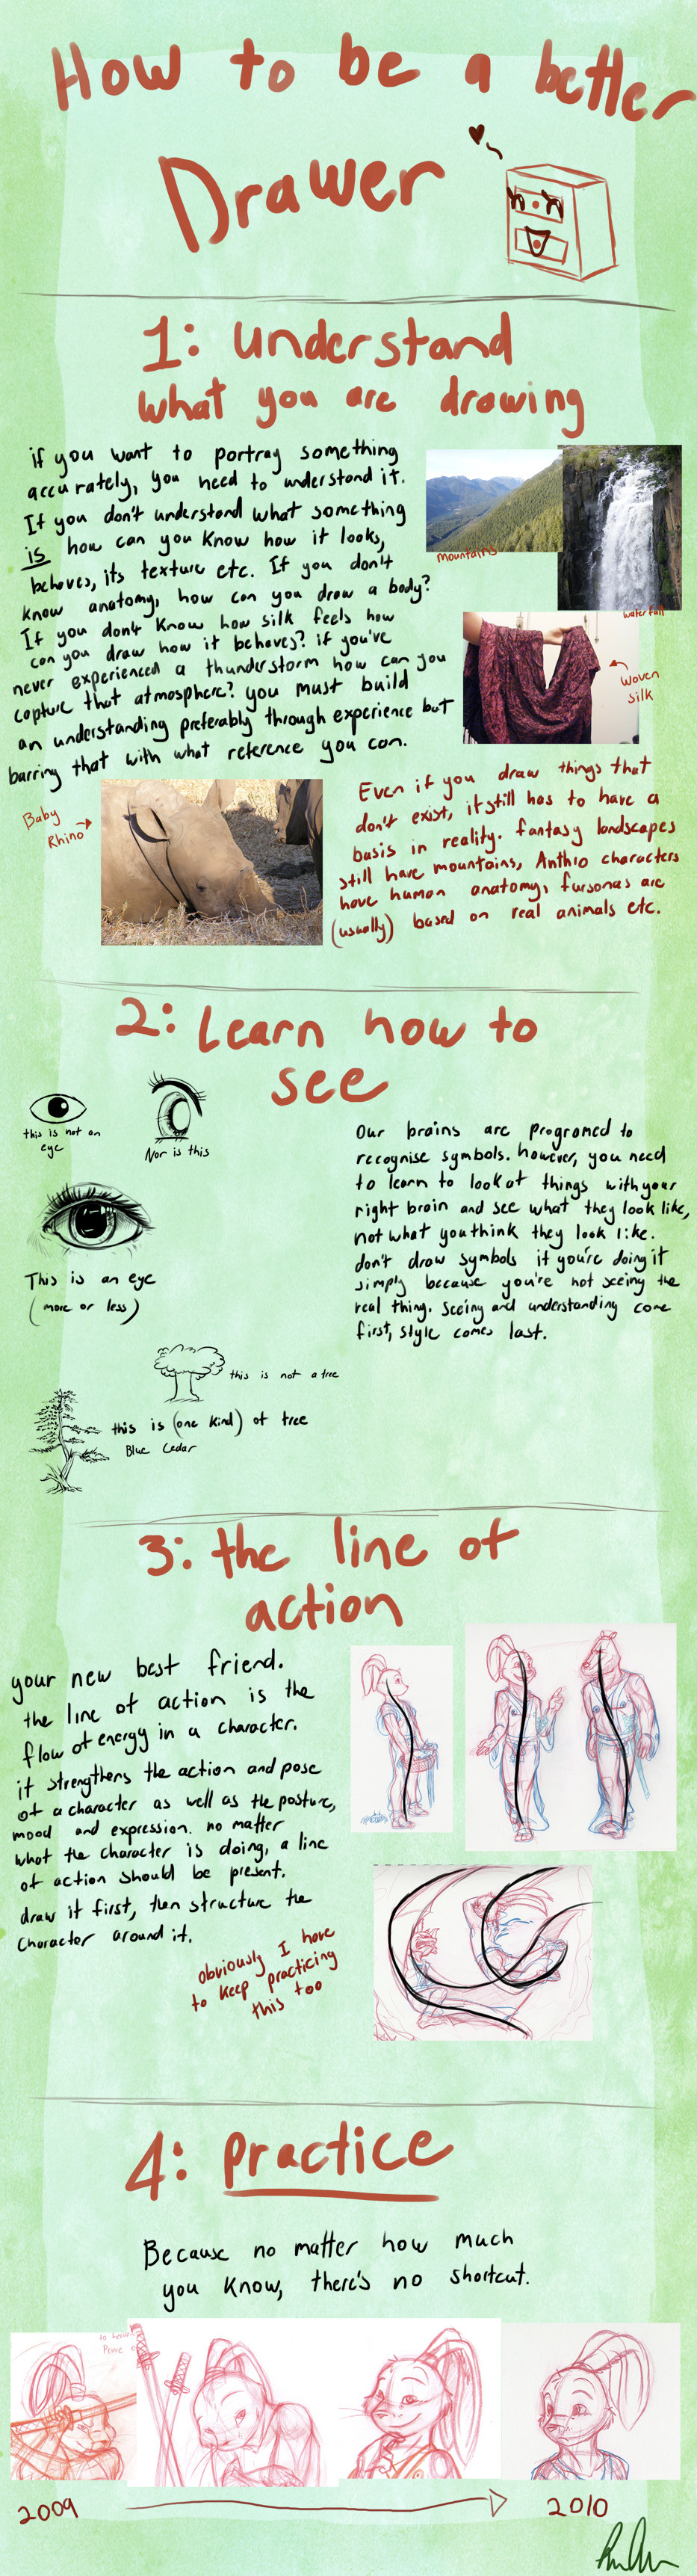 How to be a better
Drawer
1: understand
what you are drawing
if you want to portray something
accurately, you need to understand it.
If you don't understand what something
is how can you know how it looks,
behaves, its texture etc. If you don't
know anatomy, how can you draw a body?
If you don't know how silk feels how
can you draw how it behaves? if you've
never experienced a thunderstorm how can you
capture that atmosphere? you must build
an understanding preferably through experience but
barring that with what reference you can.
mountains
waterfall
woven
silk
Baby
Rhino
Even if you draw things that
don't exist, it still has to have a
basis in reality. fantasy landscapes
still have mountains, Anthro characters
have human anatomy, fursonas are
(usually) based on real animals etc.
2: Learn how to
see
this is not an
eye
Nor is this
This is an eye
(more or less)
this is not a tree
this is (one kind) of tree
Blue Cedar
Our brains are programed to
recognise symbols. however, you need
to learn to look at things with your
right brain and see what they look like,
not what you think they look like.
don't draw symbols if you're doing it
simply because you're not seeing the
real thing. Seeing and understanding come
first, style comes last.
3: the line of
action
your new best friend.
the line of action is the
flow of energy in a character.
it strengthens the action and pose
of a character as well as the posture,
mood and expression. no matter
what the character is doing, a line
of action should be present.
draw it first, then structure the
character around it.
obviously I have
to keep practicing
this too
4: practice
Because no matter how much
you know, there's no shortcut.
2009
2010